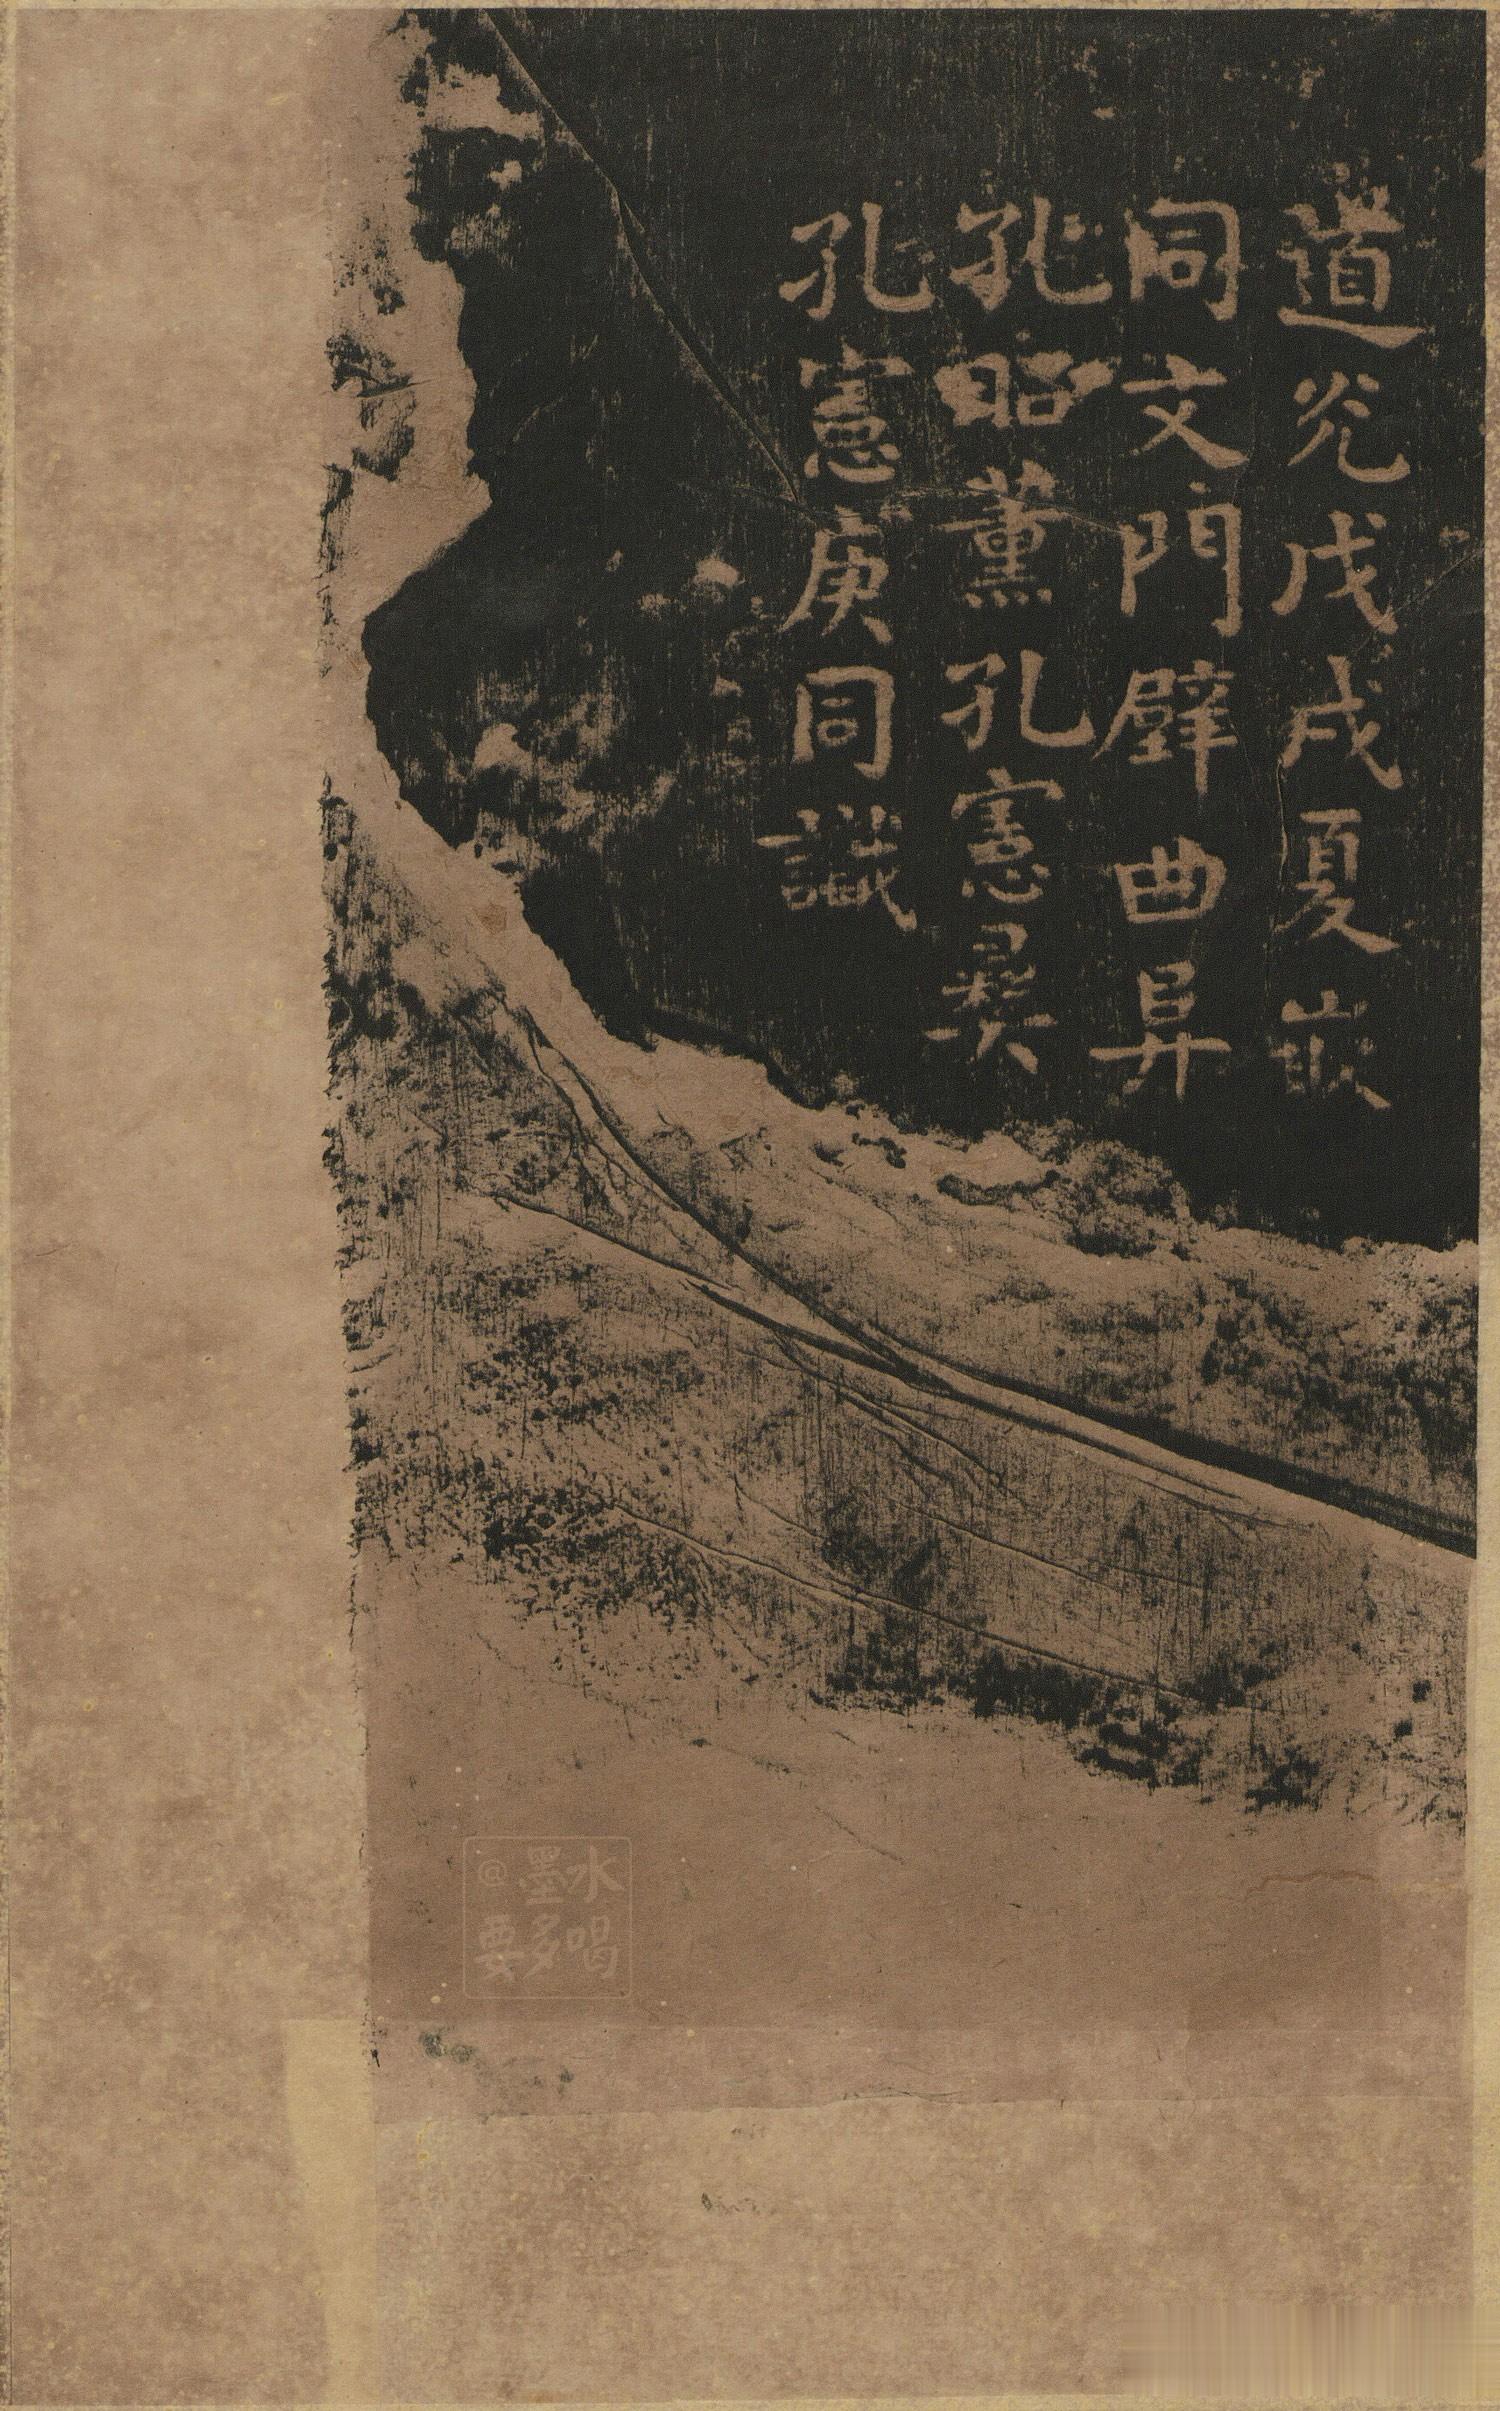 道光戊戌夏嵌
同文門壁曲阜
孔昭薰孔憲彝
孔憲庚同識
@墨水
要多喝